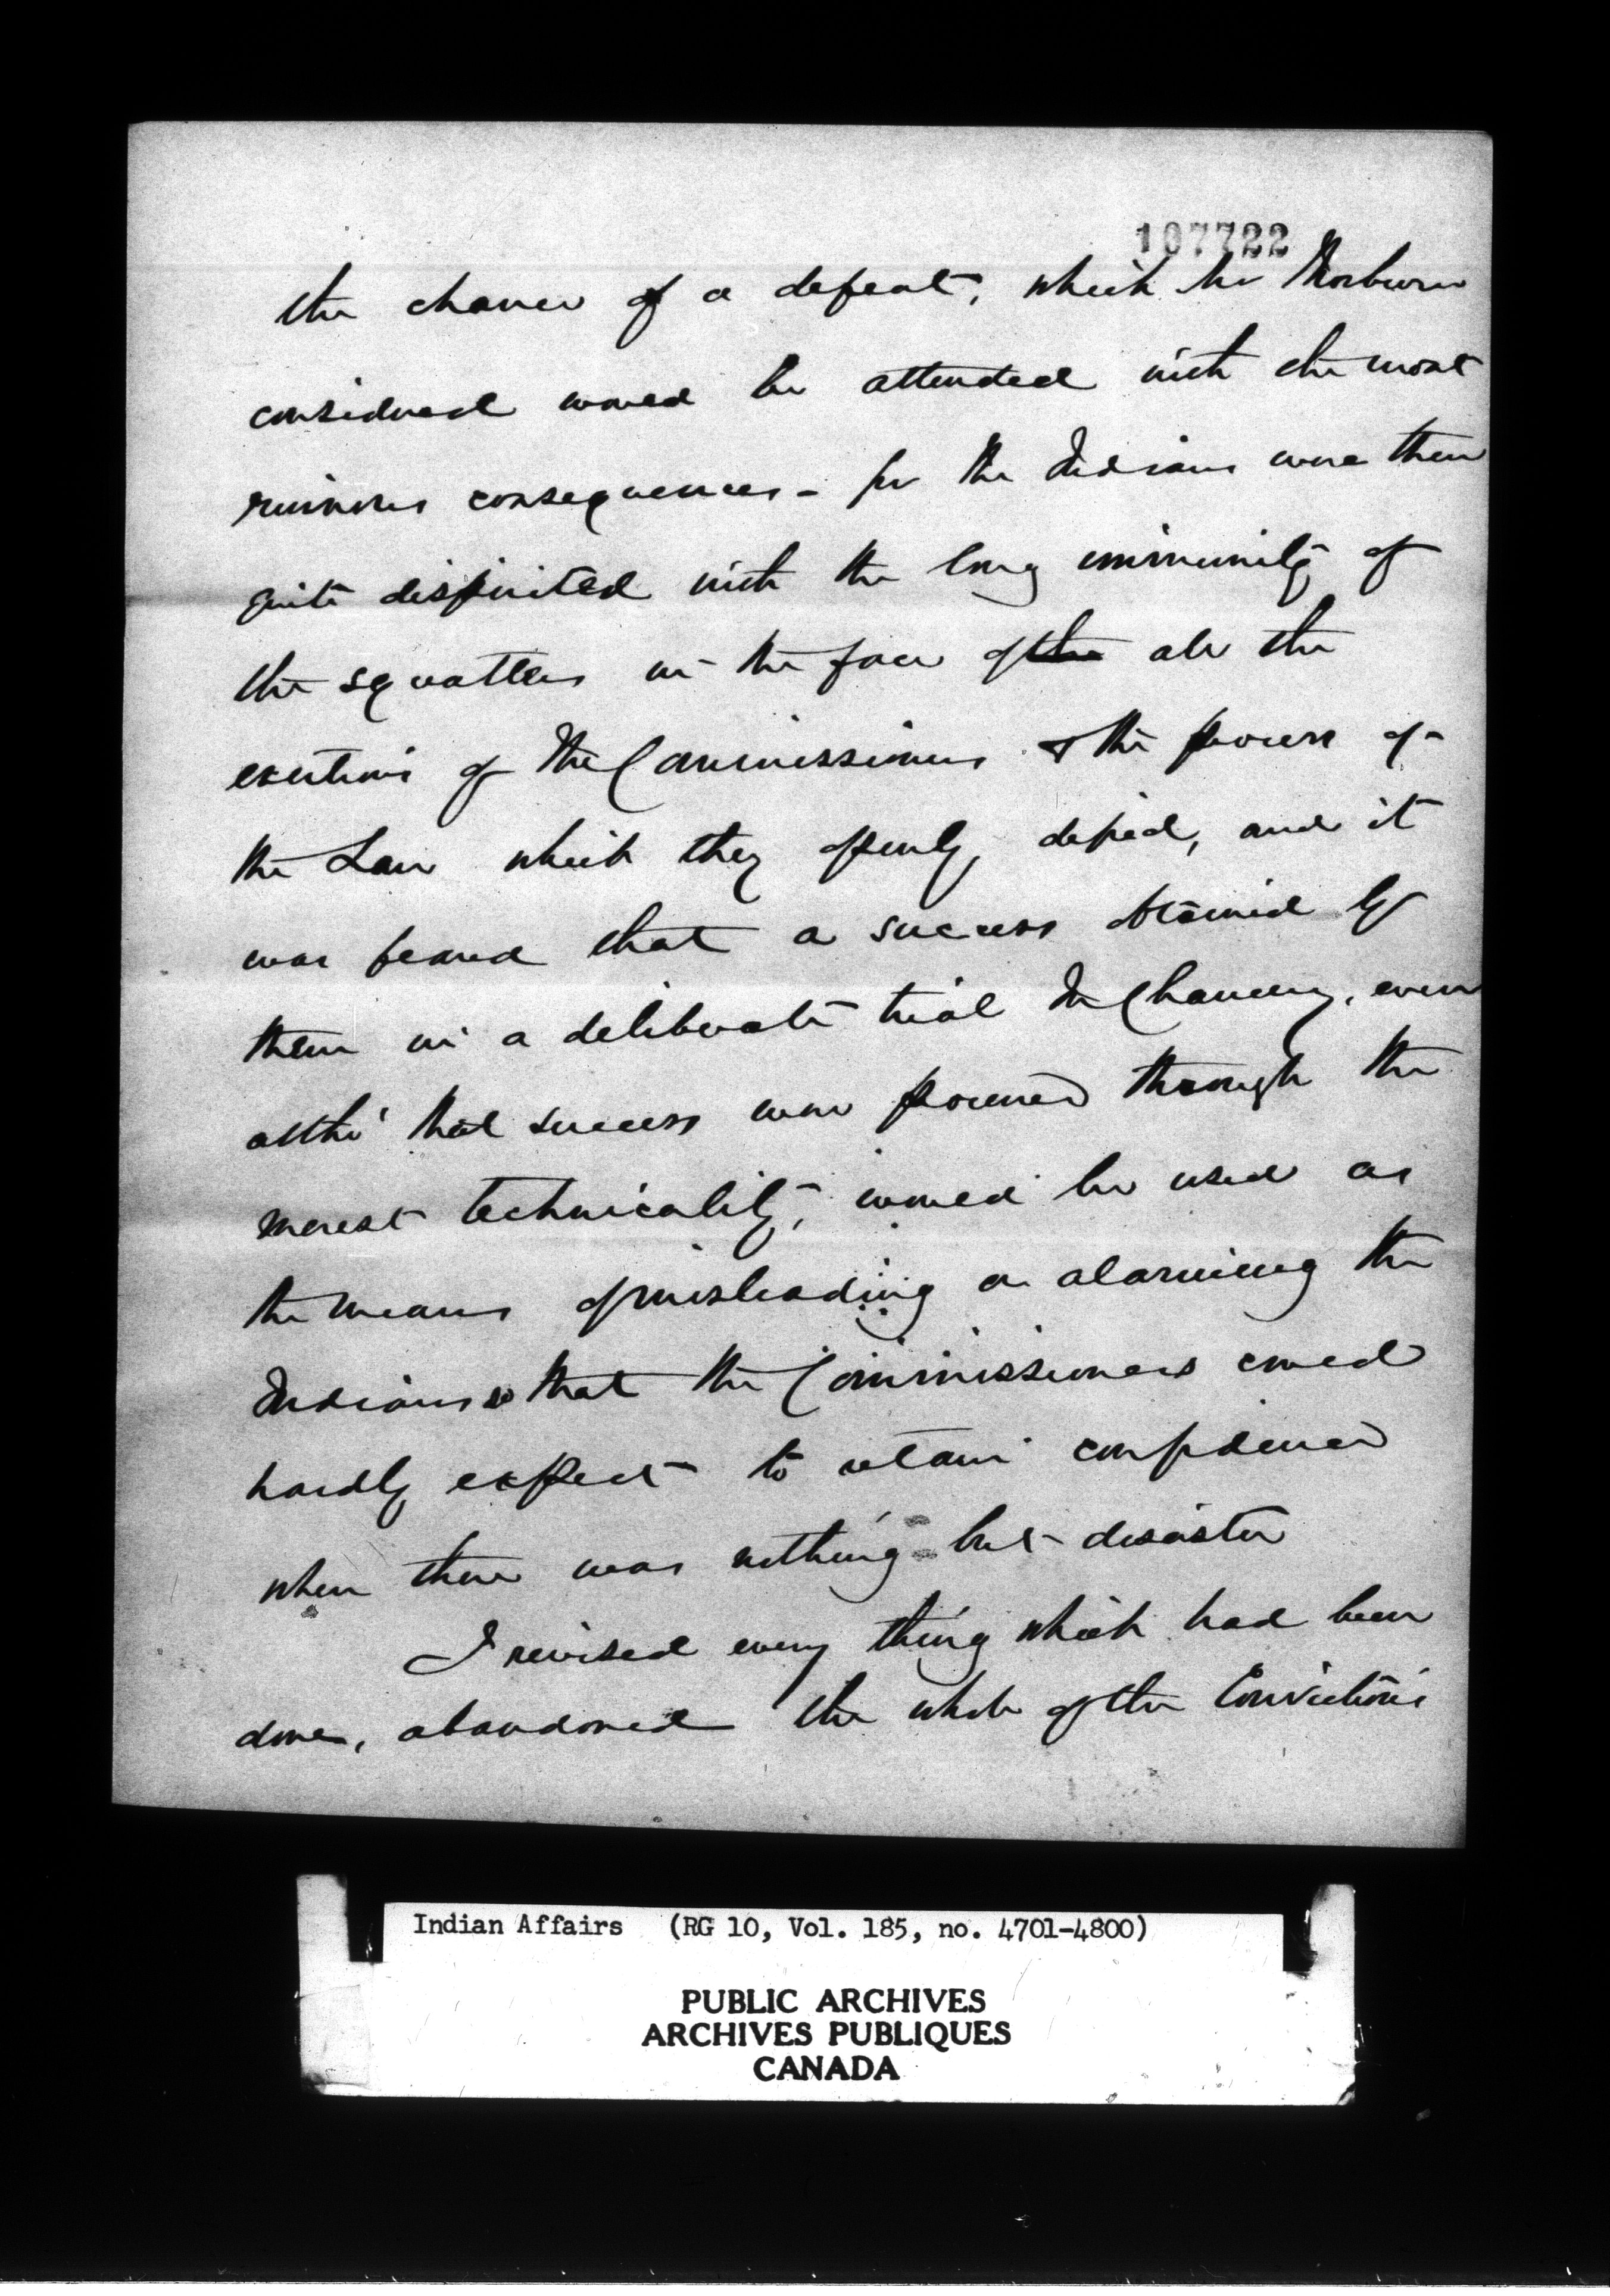 107722
the chance of a defeat, which Mr Thorburn
considered would be attended with the most
ruinous consequences - for the Indians were then
quite dispirited with the long immunity of
the squatters in the face of the all the
exertions of the Commissioners & the powers of
the Law which they openly defied, and it
was feared that a success obtained by
them in a deliberate trial In Chancery, even
altho' that success was procured through the
merest technicality, would be used as
the means of misleading or alarming the
Indians so that the Commissioners could
hardly expect to retain confidence
when there was nothing but disaster
I revised every thing which had been
done, abandoned the whole of the Convictions
Indian Affairs (RG 10, Vol. 185, no. 4701-4800)
PUBLIC ARCHIVES
ARCHIVES PUBLIQUES
CANADA